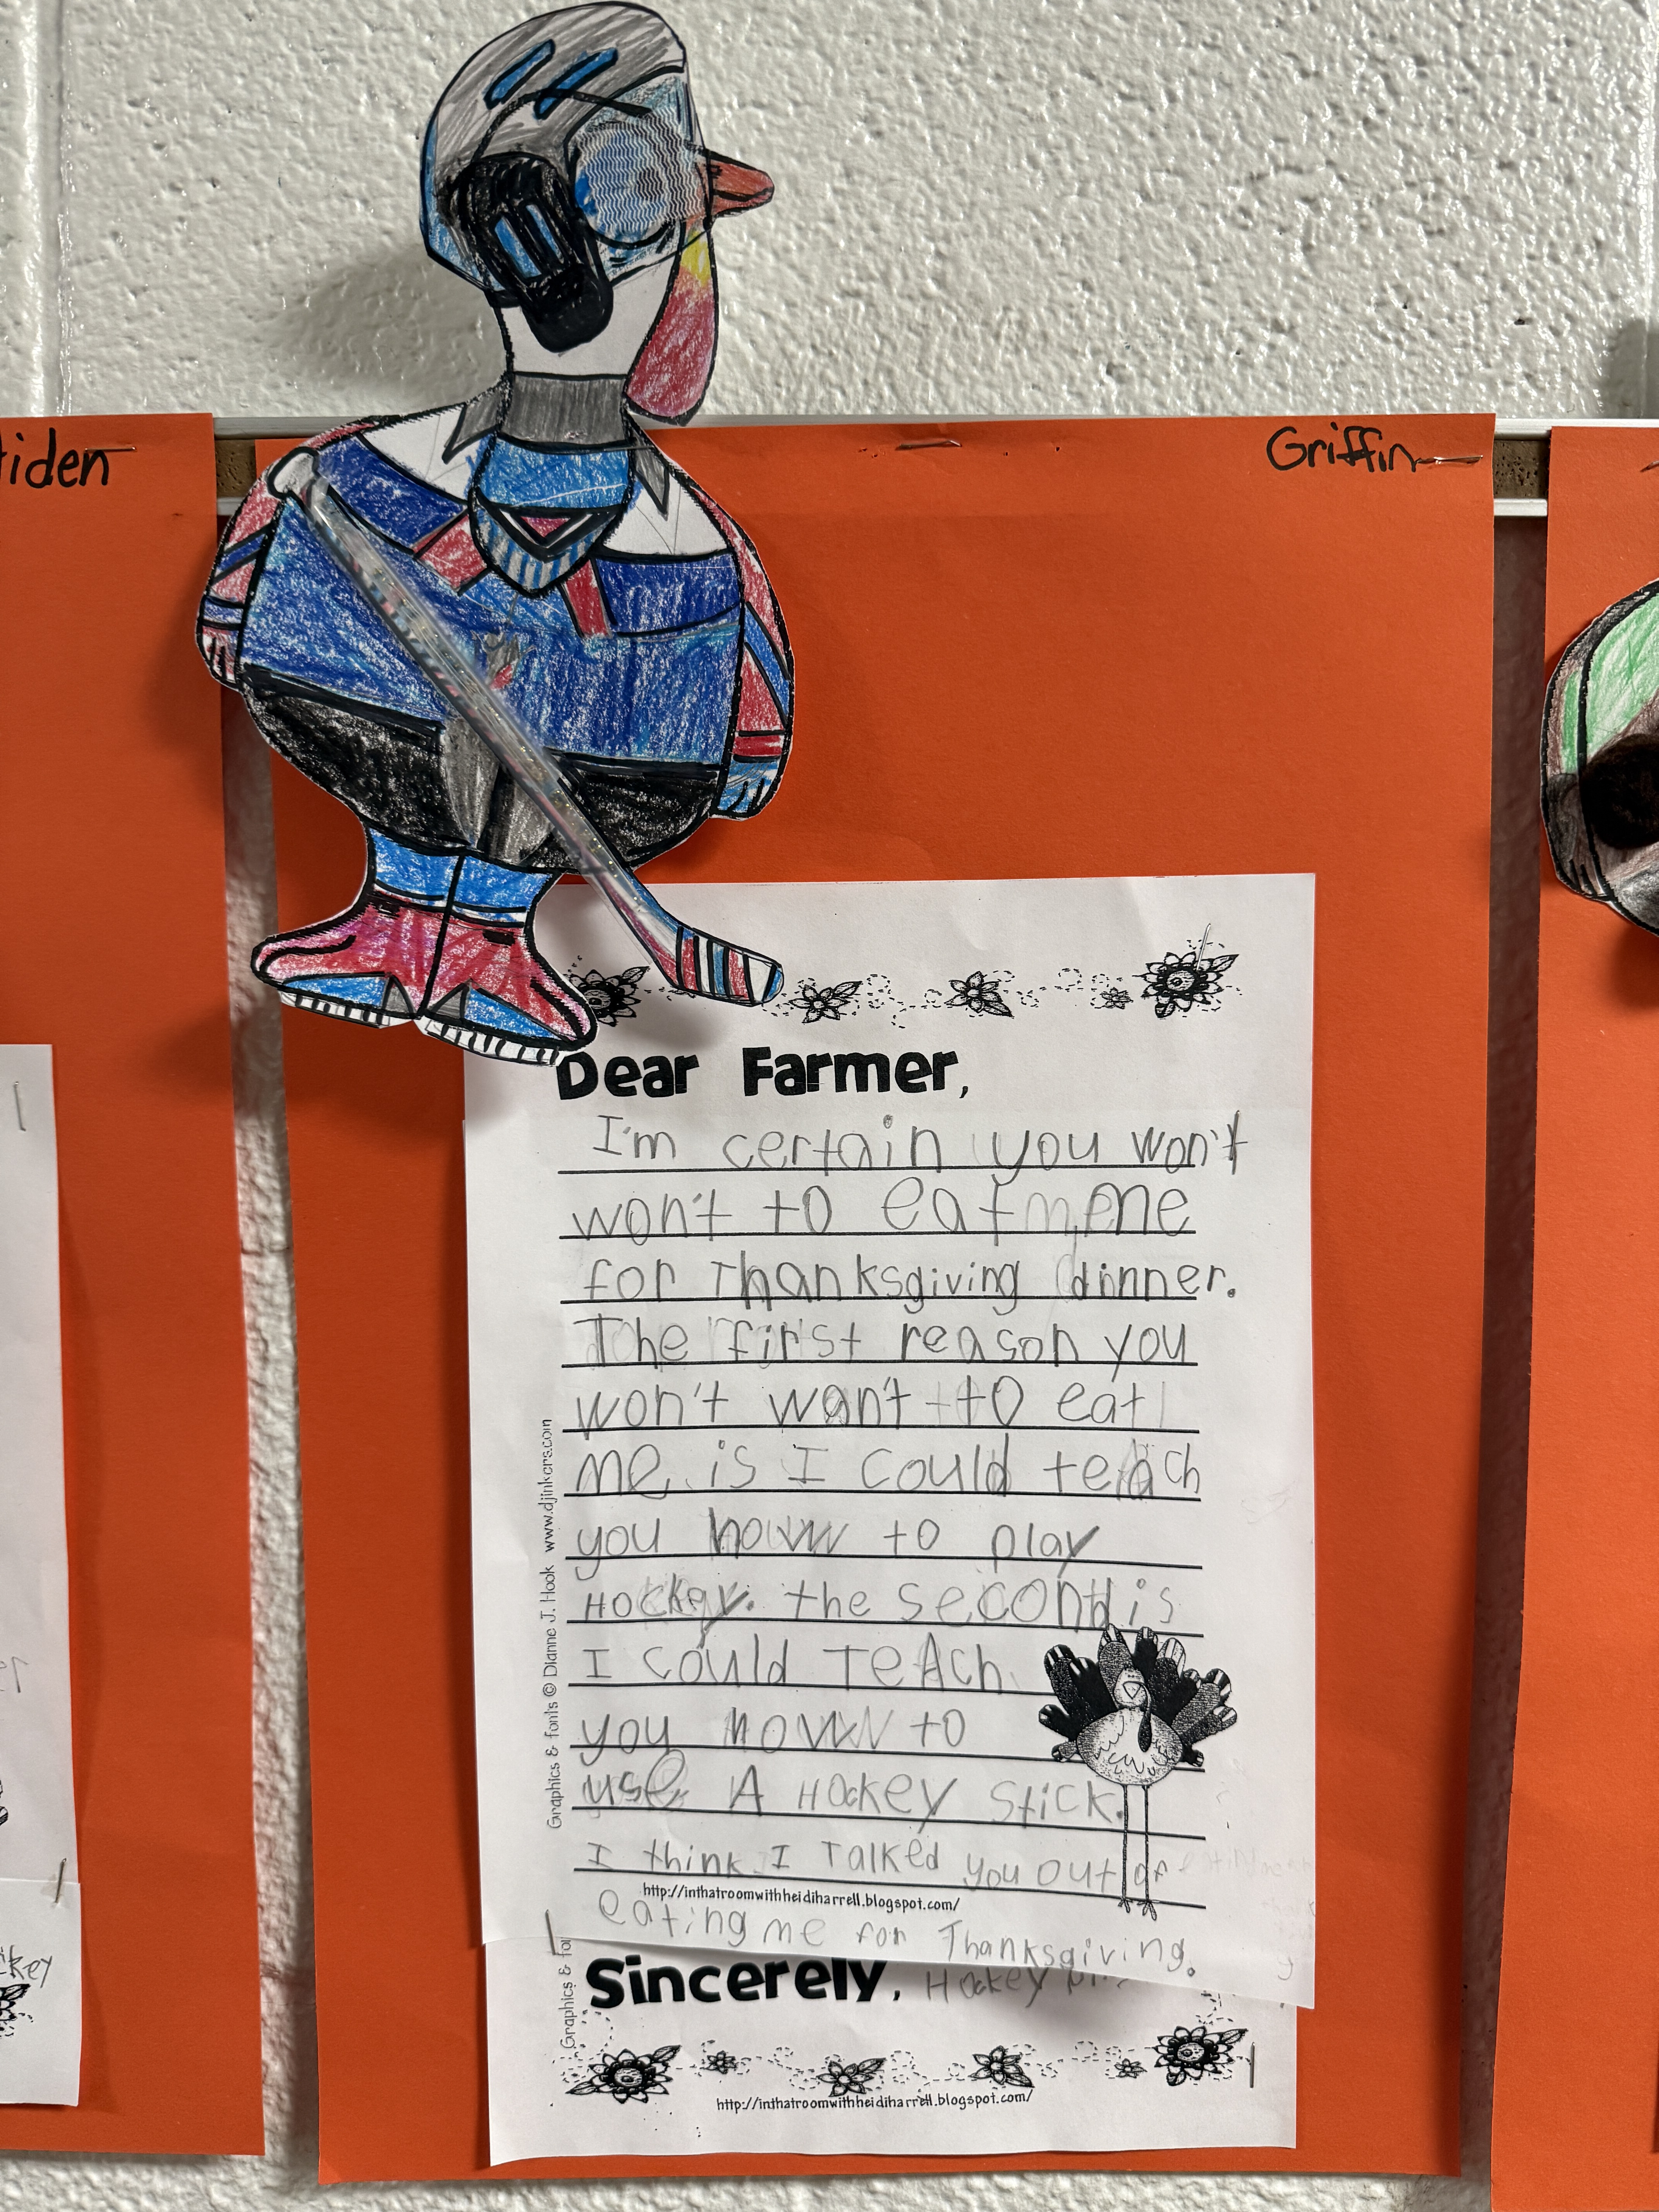 iden
Griffin
Dear Farmer,
I'm certain you won't
won't to eat me
for Thanksgiving dinner.
The first reason you
won't want to eat
me is I could teach
you how to play
Hockey. the second is
I could TeAch
you how to
use A Hockey Stick.
I think I Talked you out of
http://inthatroomwithheidiharrell.blogspot.com/
eating me for Thanksgiving.
Sincerely, Hockey
http://inthatroomwithheidiharrell.blogspot.com/
Graphics & fonts © Dianne J. Hook www.djinkers.com
Graphics & fo
ckey